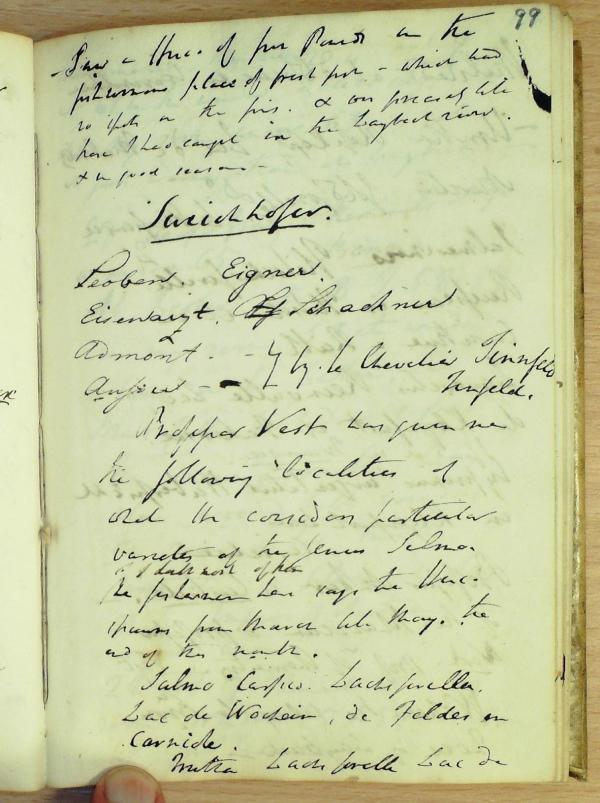 99
- Saw a Huc. of four Pounds in the
fishermans place of fresh fish - which had
no spots on the fins. & was precisely like
those I had caught in the Laybach river.
& in good season -
Leoben. Eigner.
Eisenarzt. Schachner
Admont. - by. le Chevalier Tinnfeld
Aussee - - Tinfeld.
Professor Vest has given me
the following localities of
what he considers particular
varieties of the genus Salmo.
I doubt most of them
The fishermen here says the Huc.
spawns from March till May. the
end of the month.
Salmo Carpio. Lachsforellen.
Lac de Wochein, de Feldes in
Carniole.
Trutta Lachsforelle Lac de